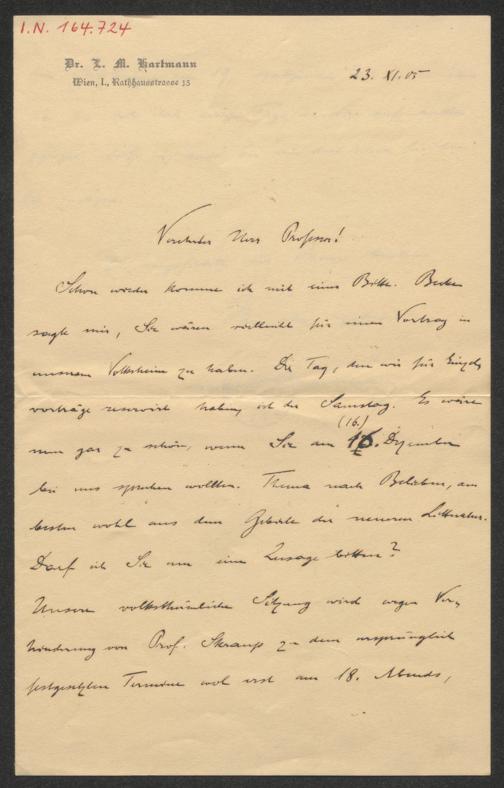 I.N. 164.724
Dr. L. M. Hartmann
Wien, I., Rathhausstrasse 15
23. XI. 05
Verehrter Herr Professor!
Schon wieder komme ich mit einer Bitte. Becke
sagte mir, Sie wären vielleicht für einen Vortrag in
unserem Volksheim zu haben. Der Tag, den wir für Einzel-
vorträge reservirt haben, ist der Samstag. Es wäre
nun gar zu schön, wenn Sie am 16. (16.) Dezember
bei uns sprechen wollten. Thema nach Belieben, am
besten wohl aus dem Gebiete der neueren Litteratur.
Darf ich Sie um eine Zusage bitten?
Unsere volksthümliche Sitzung wird wegen Ver-
hinderung von Prof. Skraup zu dem ursprünglich
festgesetzten Termine wol erst am 18. Abends,